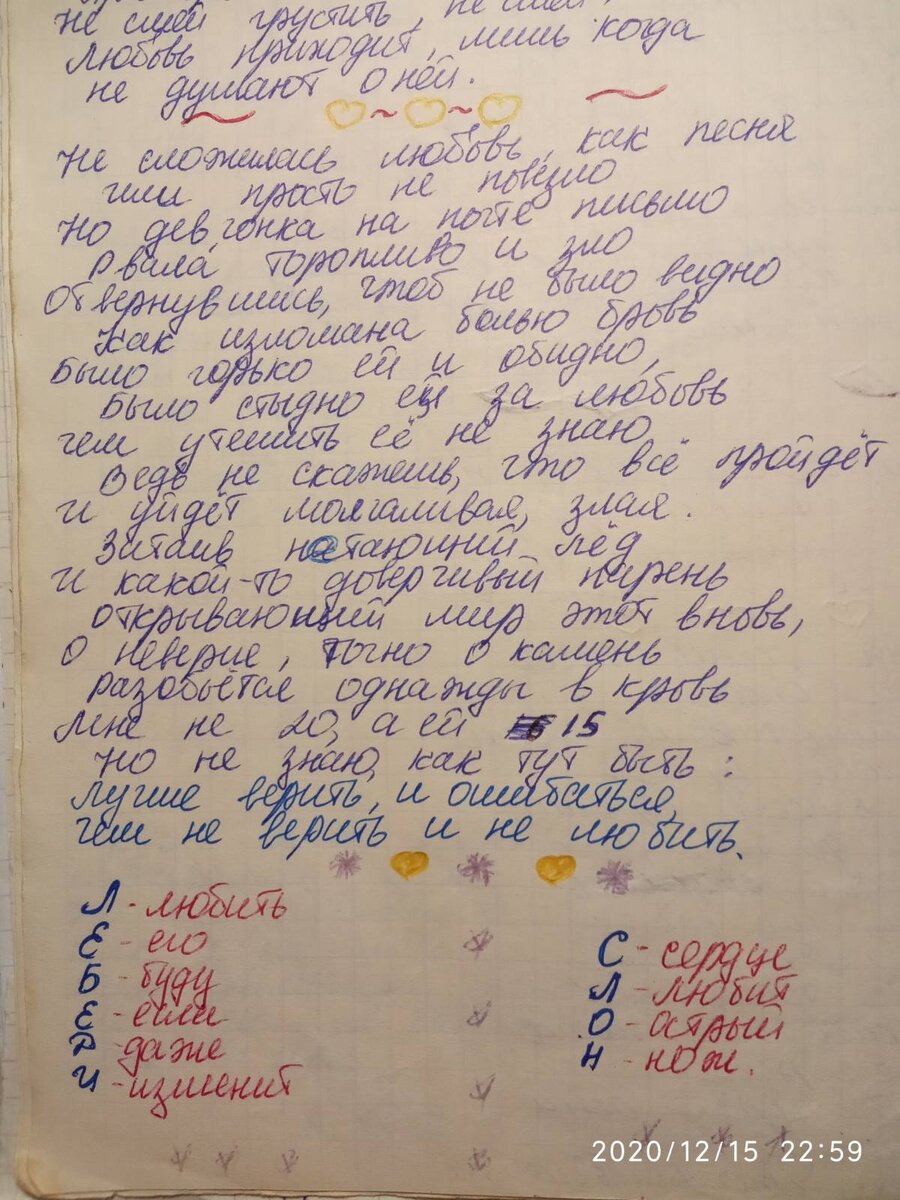 не смей грустить, не смей,
любовь приходит, лишь когда
не думают о ней.
Не сложилась любовь, как песня
или прость не повезло
Но девчонка на почте письмо
Рвала торопливо и зло
Отвернувшись, чтоб не было видно
Как изломана болью бровь
Было горько ей и обидно,
Было стыдно ей за любовь
чем утешить её не знаю
Ведь не скажешь, что всё пройдёт
и уйдёт молчаливая, злая.
Затаив нетающий лёд
И какой-то доверчивый парень
открывающий мир этот вновь,
О неверие, точно о камень
разобьётся однажды в кровь
Мне не 20, а ей 15
Но не знаю, как тут быть:
лучше верить, и ошибаться,
чем не верить и не любить.
Л - любить
Е - его
Б - буду
Е - если
Д - даже
И - изменит
С - сердце
Л - любит
О - острый
Н - нож.
2020/12/15 22:59